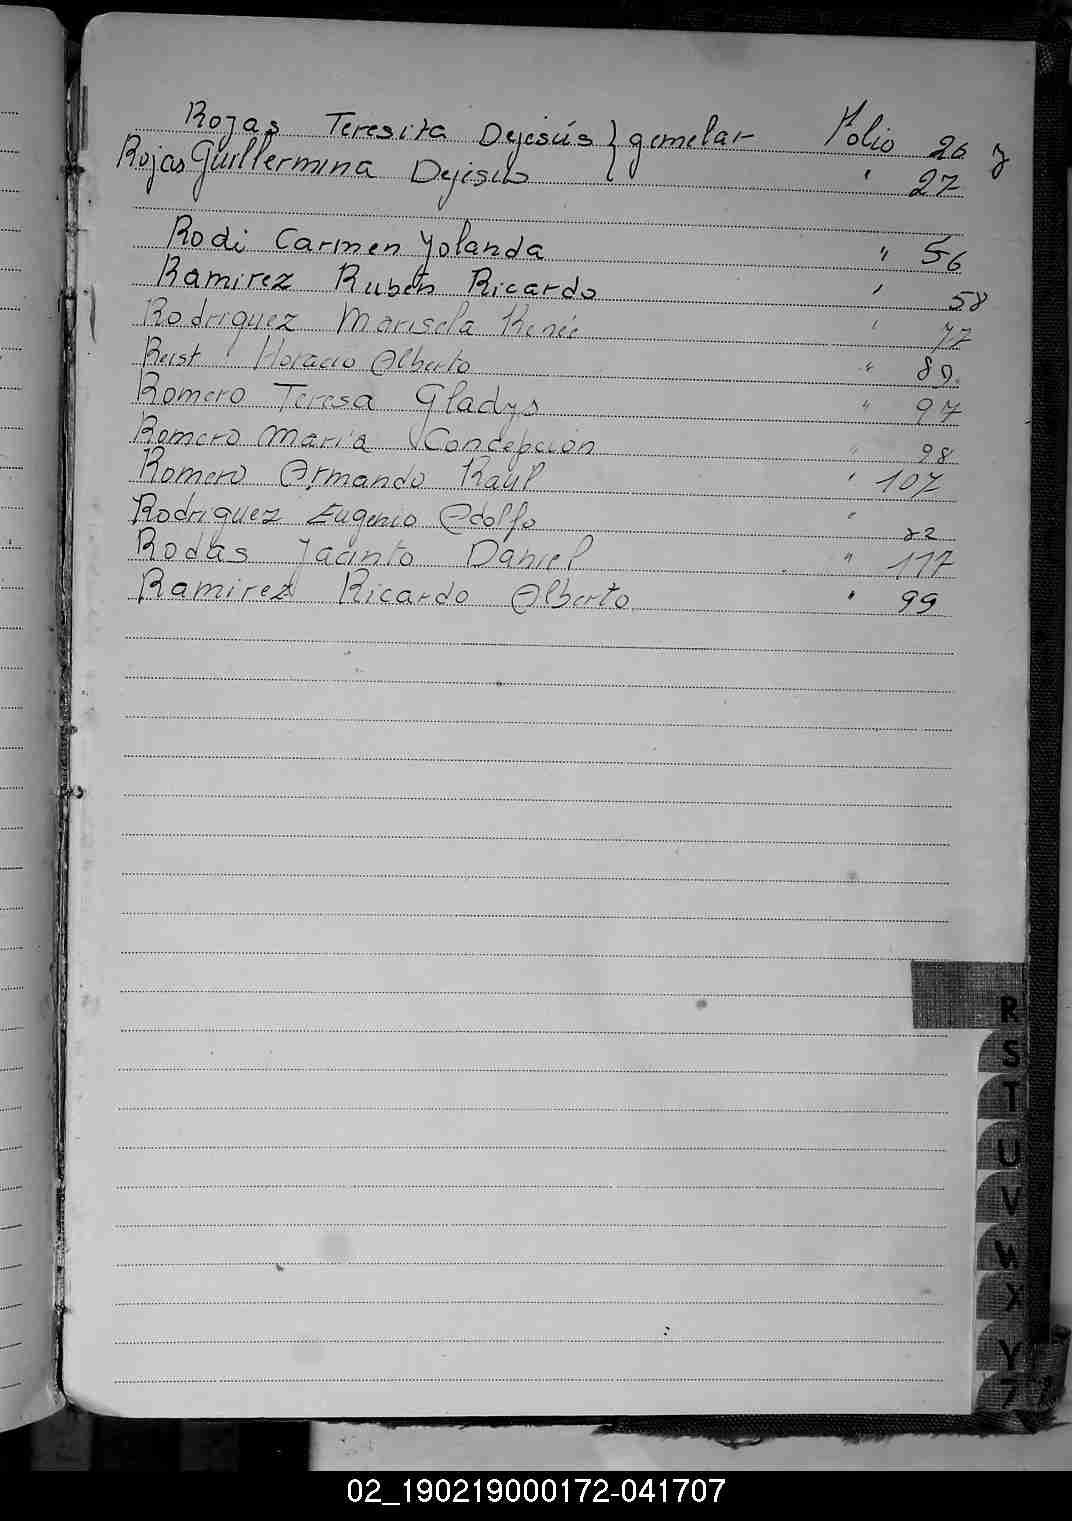 Rojas Teresita Dejesús } gemelar Folio 26 y
Rojas Guillermina Dejesus " 27
Rodi Carmen Yolanda " 56
Ramirez Rubén Ricardo " 58
Rodriguez Marisela Renée " 77
Reist Horacio Alberto " 89.
Romero Teresa Gladys " 97
Romero Maria Concepción " 98
Romero Armando Raul " 107
Rodriguez Eugenio Adolfo " 22
Rodas Jacinto Daniel " 117
Ramirez Ricardo Alberto " 99
R
S
T
U
V
W
X
Y
Z
02_190219000172-041707